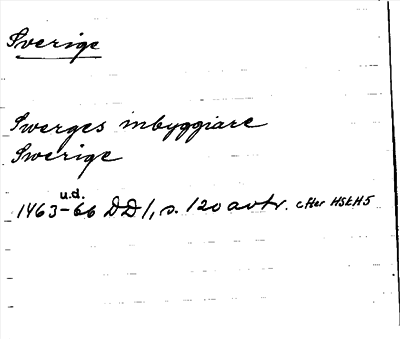 Sverige
Swerges inbyggiare
Swerige
u.d.
1463-66 DD1, s. 120 avtr. efter HSH5